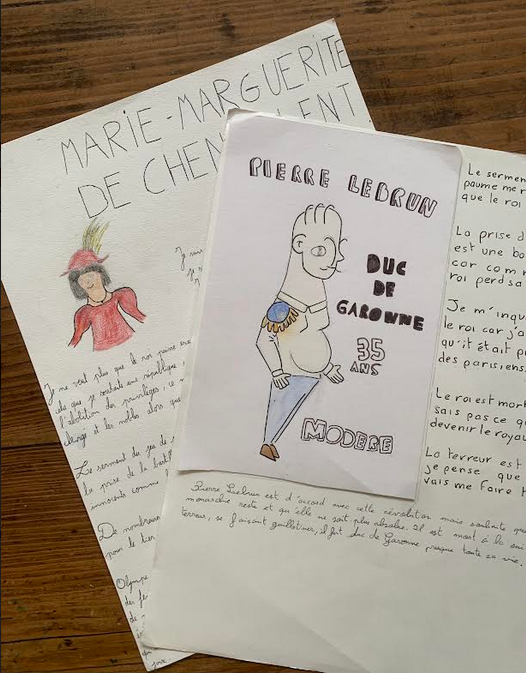 MARIE-MARGUERITE
DE CHEN LENT
Je ne veut plus que le roi
cela que je souhaite une république
l'abolition des privilèges, ce
clergé et les nobles alors que
Le serment du jeu de
la prise de la bastil
innocents comme
De nombreuse
pour le tier
Olympe
des fe
de
PIERRE LEBRUN
DUC
DE
GARONNE
35
ANS
MODERE
Le sermen
paume me r
que le roi
La prise d
est une bo
car com
roi perd sa
Je m'inqu
le roi car j'a
qu'il était p
des parisiens
Le roi est mort
sais pas ce qu
devenir le royau
La terreur est
je pense que
vais me faire
Pierre Lebrun est d'accord avec cette révolution mais souhaite que
monarchie reste et qu'elle ne soit plus absolue. Il est mort à la
terreur, se faisant guillotiner, il fut duc de Garonne presque toute sa vie.